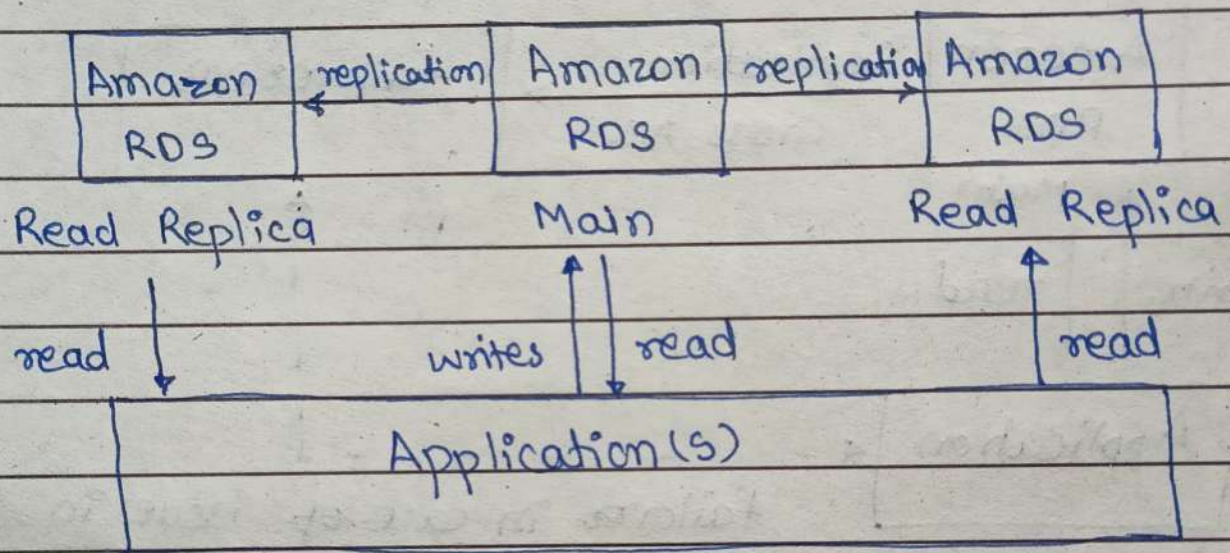 Amazon replication Amazon replicatio Amazon
RDS RDS RDS
Read Replica Main Read Replica
read writes read read
Application(s)